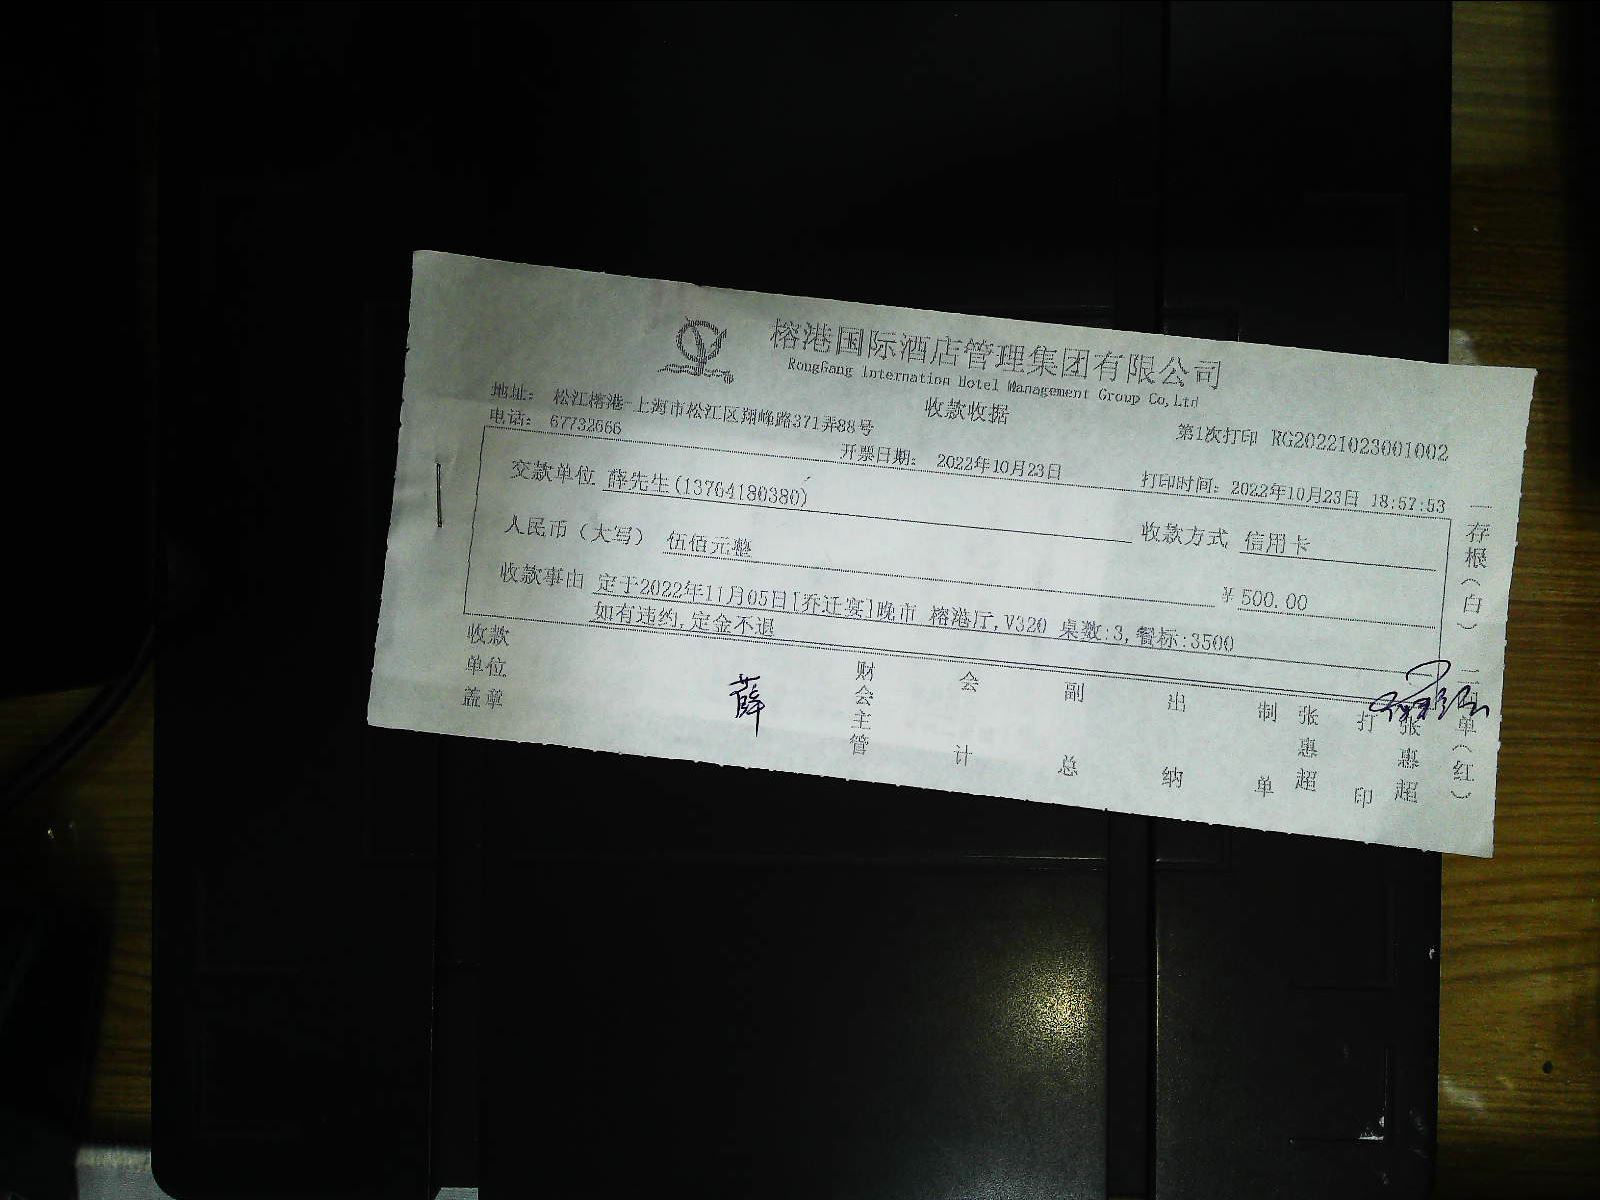 榕港国际酒店管理集团有限公司
RongGang Internation Hotel Management Group Co,Ltd
地址: 松江榕港-上海市松江区翔峰路371弄88号
收款收据
第1次打印 RG20221023001002
电话: 67732666
开票日期: 2022年10月23日
打印时间: 2022年10月23日 18:57:53
交款单位 薛先生(13764180380)
收款方式 信用卡
人民币（大写） 伍佰元整
¥ 500.00
收款事由 定于2022年11月05日[乔迁宴]晚市 榕港厅,V320 桌数:3,餐标:3500
如有违约,定金不退
收款单位盖章
薛
财会主管
会计
副总
出纳
制单 张惠超
打印 张惠超
一存根(白)
单(红)